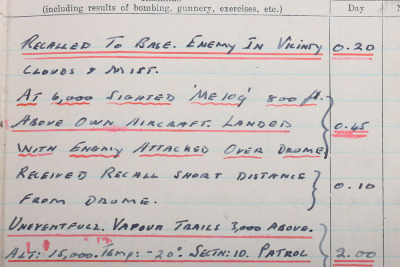 (including results of bombing, gunnery, exercises, etc.) Day
RECALLED TO BASE. ENEMY IN VICINITY 0.20
CLOUDS & MIST.
AT 6,000 SIGHTED 'ME 109' 800 ft.
ABOVE OWN AIRCRAFT. LANDED 0.45
WITH ENEMY ATTACKED OVER DROME
RECEIVED RECALL SHORT DISTANCE 0.10
FROM DROME.
UNEVENTFUL. VAPOUR TRAILS 3,000 ABOVE.
ALT: 15,000. TEMP: -20°. SECTN: 10. PATROL 2.00